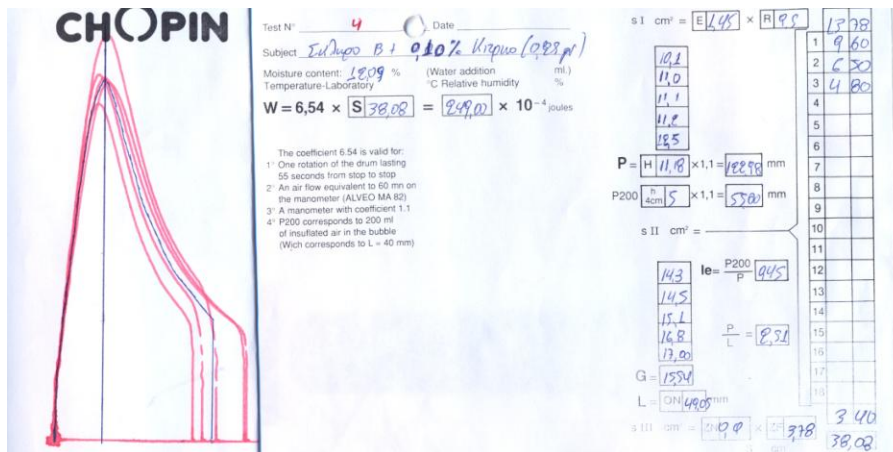 CHOPIN
Test N° 4 Date
Subject Σκληρο Β + 0,10% Κιτρικο (0,25 gr)
Moisture content: 12,09 % (Water addition ml.)
Temperature-Laboratory °C Relative humidity %
W = 6,54 × S 38,08 = 249,00 × 10⁻⁴ joules
The coefficient 6.54 is valid for:
1° One rotation of the drum lasting
55 seconds from stop to stop
2° An air flow equivalent to 60 mn on
the manometer (ALVEO MA 82)
3° A manometer with coefficient 1.1
4° P200 corresponds to 200 ml
of insuflated air in the bubble
(Wich corresponds to L = 40 mm)
s I cm² = E 1,45 × R 9,5
10,1
11,0
11,1
11,2
12,5
P = H 11,18 ×1,1 = 122,98 mm
P200 h 4cm 5 ×1,1 = 55,00 mm
s II cm² =
14,3
14,5
15,1
16,8
17,00
Ie = P200 / P 0,45
P / L = 2,51
G = 15,54
L = ON 49,05 mm
s III cm² = × 3,78
13 78
1 9 60
2 6 50
3 4 80
4
5
6
7
8
9
10
11
12
13
14
15
16
17
18
3 40
38,08